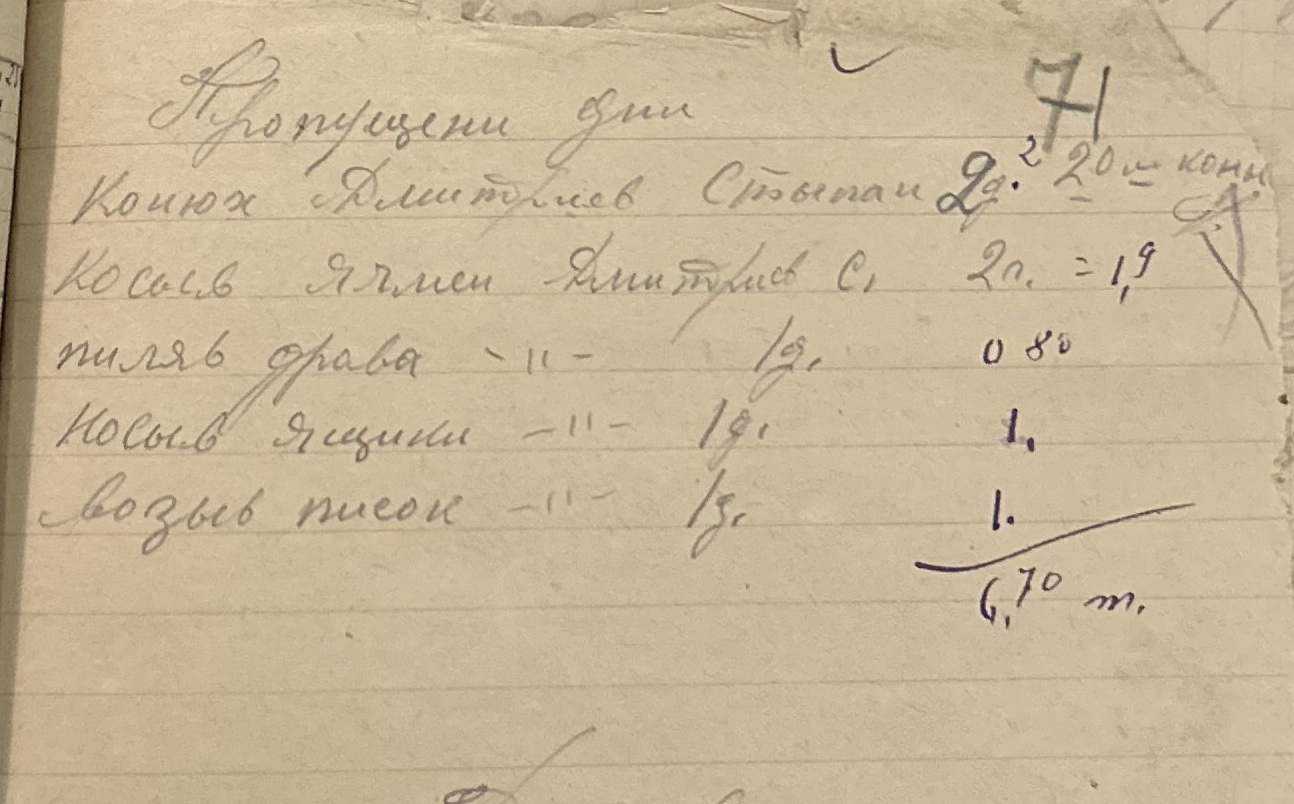 71
Пропущени дни
Конюх Дмитриев Стыпан 2д. 2 20 м кони
Косыв Ячмен Дмитриев С. 2г. = 1,9
пиляв драва -"- 1д. 0 80
Носыв ящики -"- 1д. 1.
возыв писок -"- 1д. 1.
6,70 т.